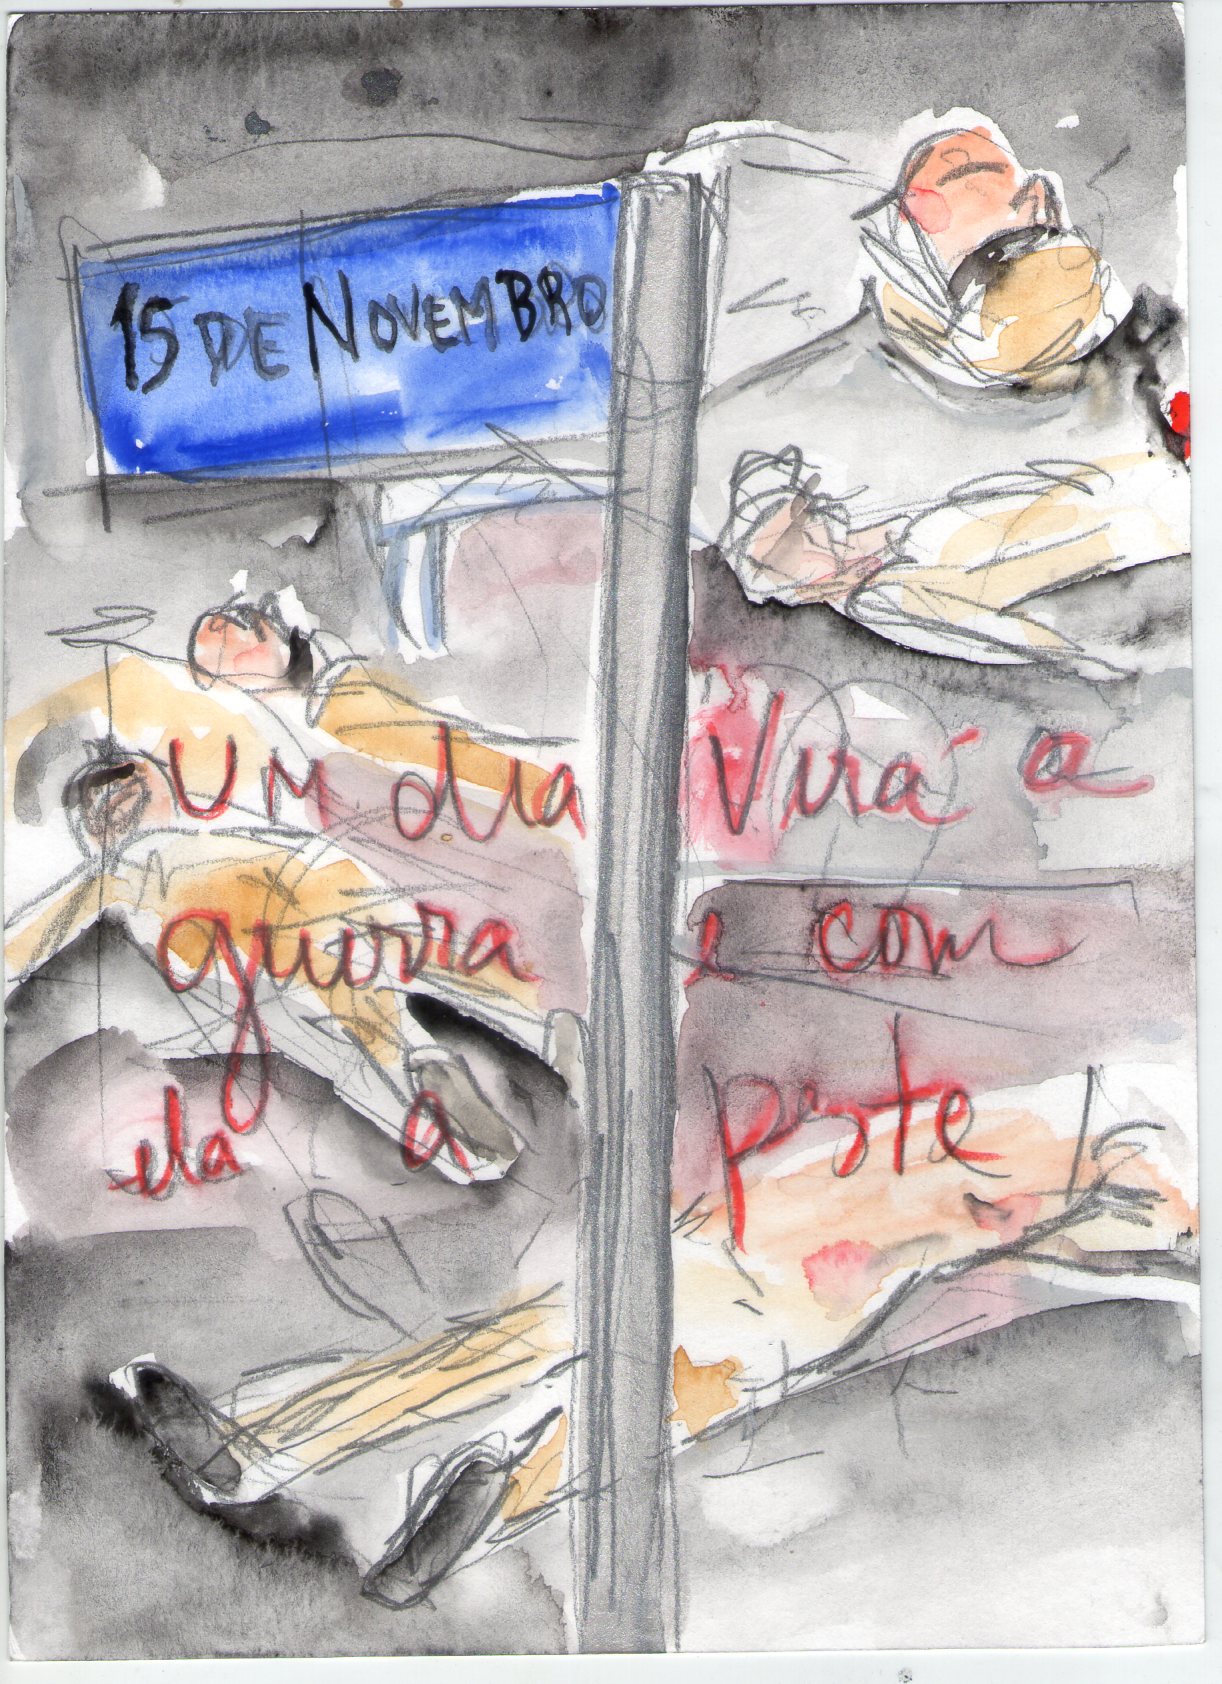 15 DE NOVEMBRO
UM dia Virá a
guerra e com
ela a peste